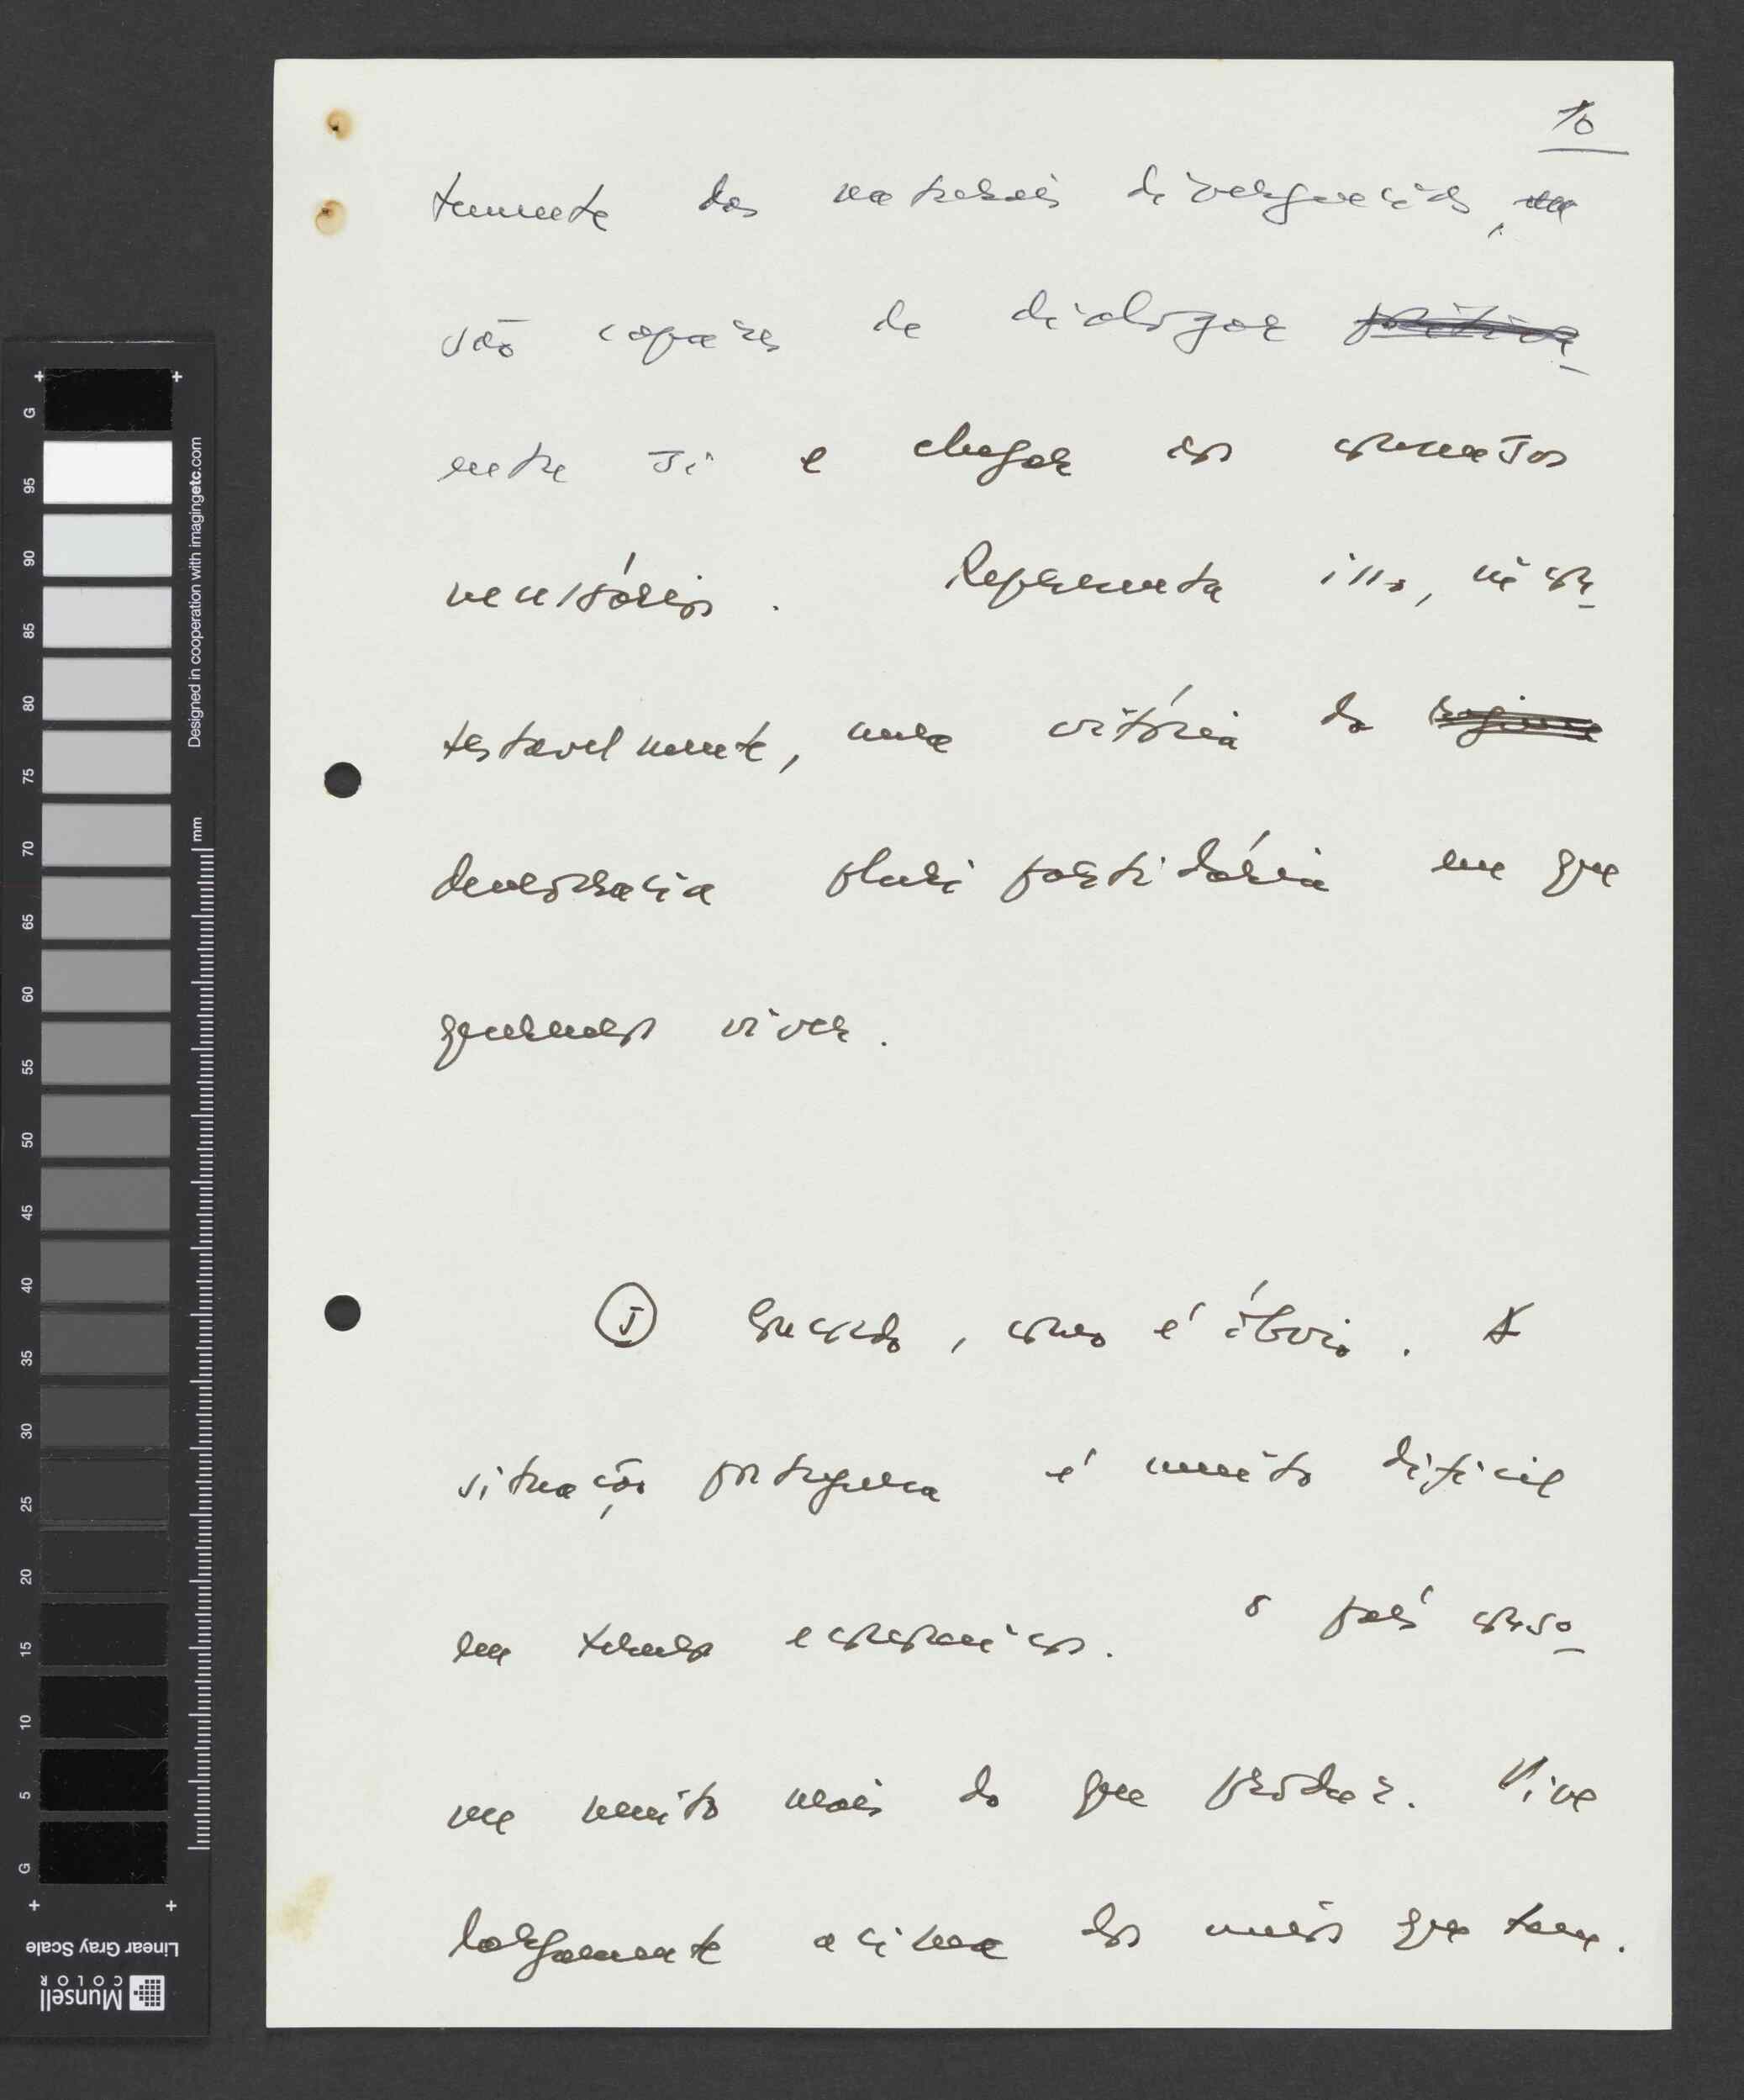 10
temente das naturais divergências,
são capazes de dialogar
entre si e chegar aos consensos
necessários. Representa isso, incon-
testavelmente, uma vitória da
democracia pluripartidária em que
queremos viver.
J , como é óbvio. A
situação portuguesa é muito dificil
em termos económicos. O país conso-
me muito mais do que produz. Vive
largamente acima dos meios que tem.
Designed in cooperation with imagingetc.com
mm
G 95 90 85 80 75 70 65 60 55 50 45 40 35 30 25 20 15 10 5 G
Linear Gray Scale
Munsell
COLOR